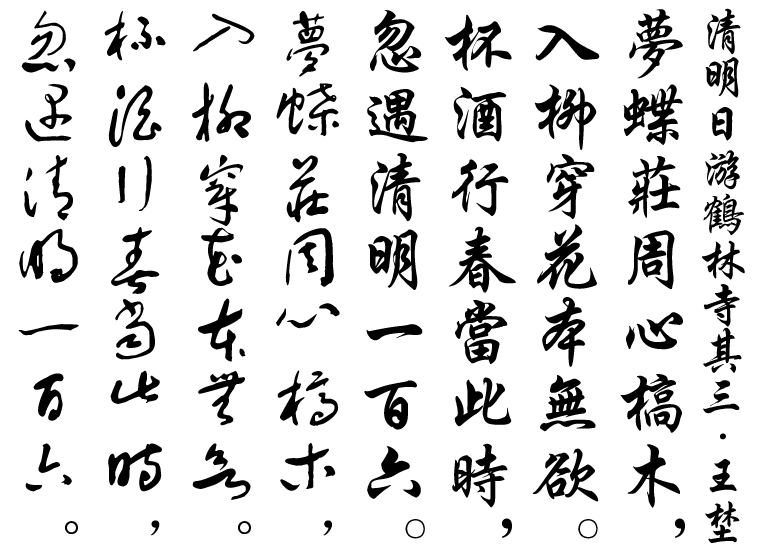 清明日游鶴林寺其三．王埜
夢蝶莊周心槁木，
入柳穿花本無欲。
杯酒行春當此時，
忽遇清明一百六。
夢蝶莊周心槁木，
入柳穿花本無欲。
杯酒行春當此時，
忽遇清明一百六。